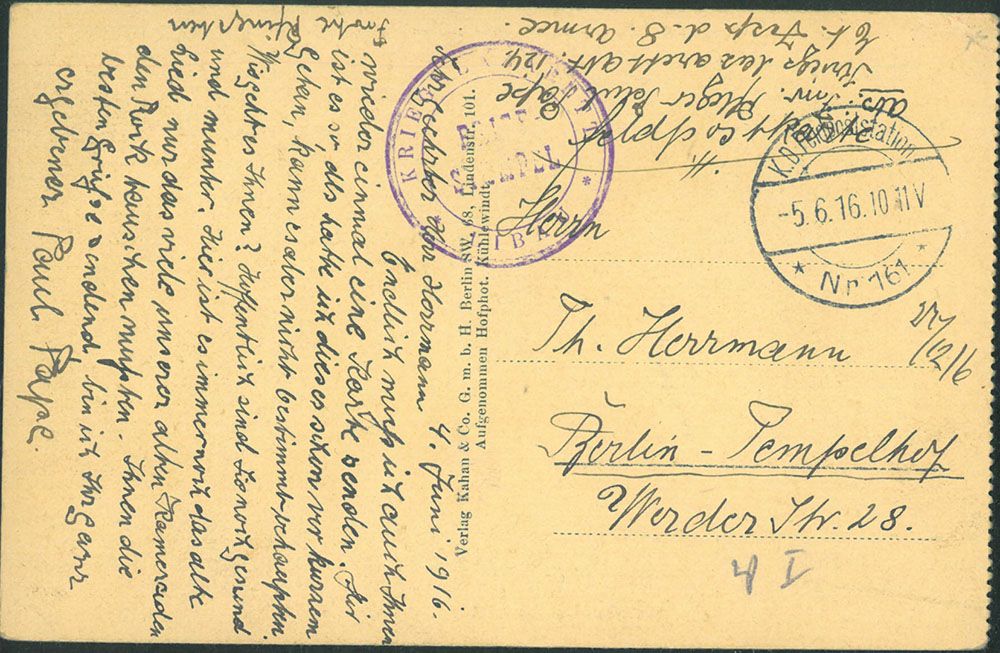 abs. San. Pfleger Paul Pape
Kriegslazarettabt. 124
Et. Insp. d. 8. Armee
KRIEGSLAZARETT
STEMPEL
LIBAU
K.D. Feldpoststation
-5.6.16.10-11V
* Nr 161 *
Herrn
Th. Herrmann
Berlin - Tempelhof
Werder Str. 28.
27/12/6
I
4
Verlag Kahan & Co. G. m. b. H. Berlin SW. 68, Lindenstr. 101.
Aufgenommen Hofphot. Kühlewindt.
4. Juni 1916.
Sehr geehrter Herr Herrmann
Endlich muß ich auch Ihnen
wieder einmal eine Karte senden. Mir
ist es so als hatte ich dieses schon vor kurzem
getan, kann es aber nicht bestimmt behaupten.
Frohe Pfingsten
Wie geht es Ihnen? Hoffentlich sind Sie noch gesund
und munter. Hier ist es immer noch das alte
Lied nur das viele unserer alten Kameraden
den Rock tauschen mußten. Ihnen die
besten Grüße sendend bin ich Ihr ganz
ergebener Paul Pape.